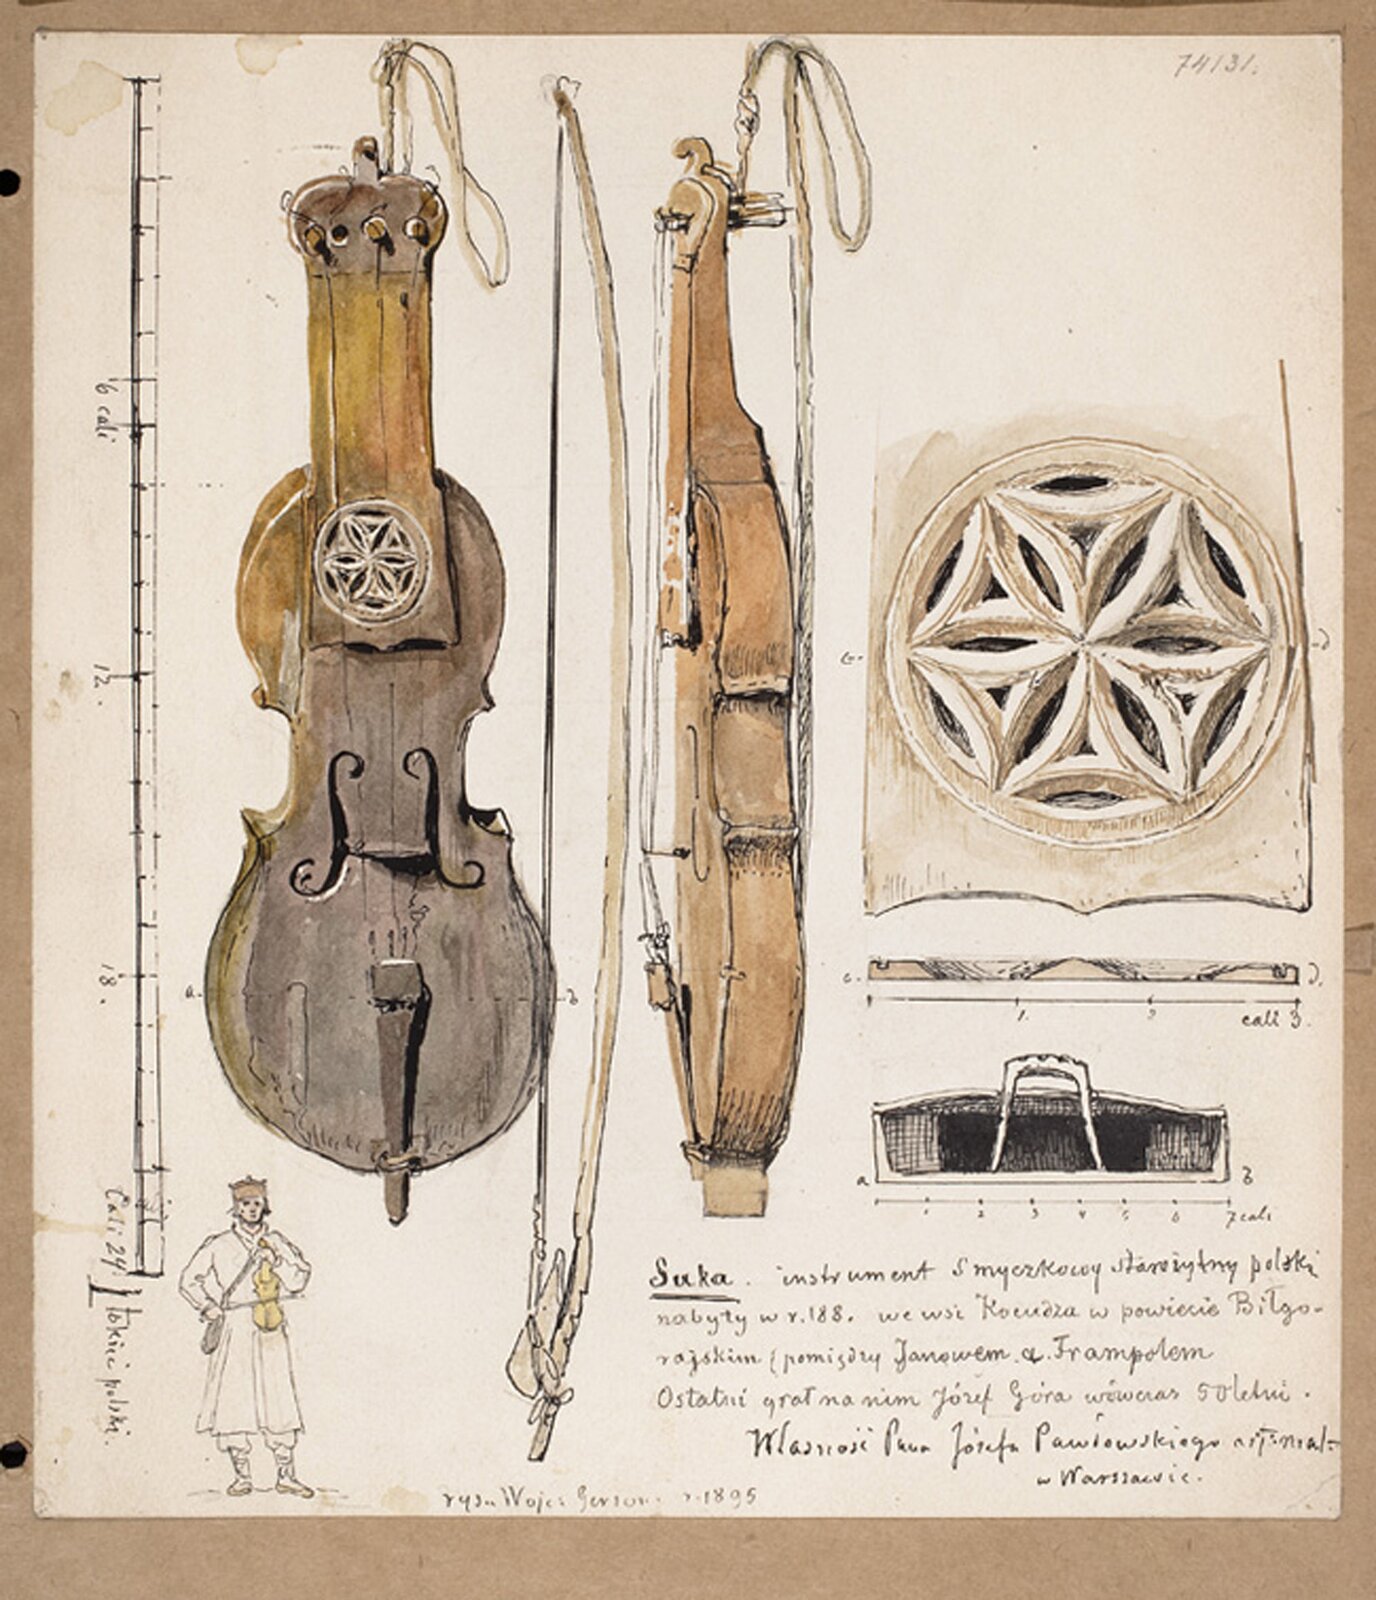 74131.
6 cali
12.
18.
Cali 24 } łokieć polski.
a.
b
c.
d
c.
d.
1.
2
cali 3.
a
b
1
2
3
4
5
6
7 cali
Suka. instrument Smyczkowy starożytny polski
nabyty w r. 188. we wsi Kocudza w powiecie Biłgo-
rajskim (pomiędzy Janowem a Frampolem
Ostatni grał na nim Józef Góra wówczas 50letni.
Własność Pana Józefa Pawłowskiego art. mal-
w Warszawie.
rys. Wojc. Gerson. r. 1895